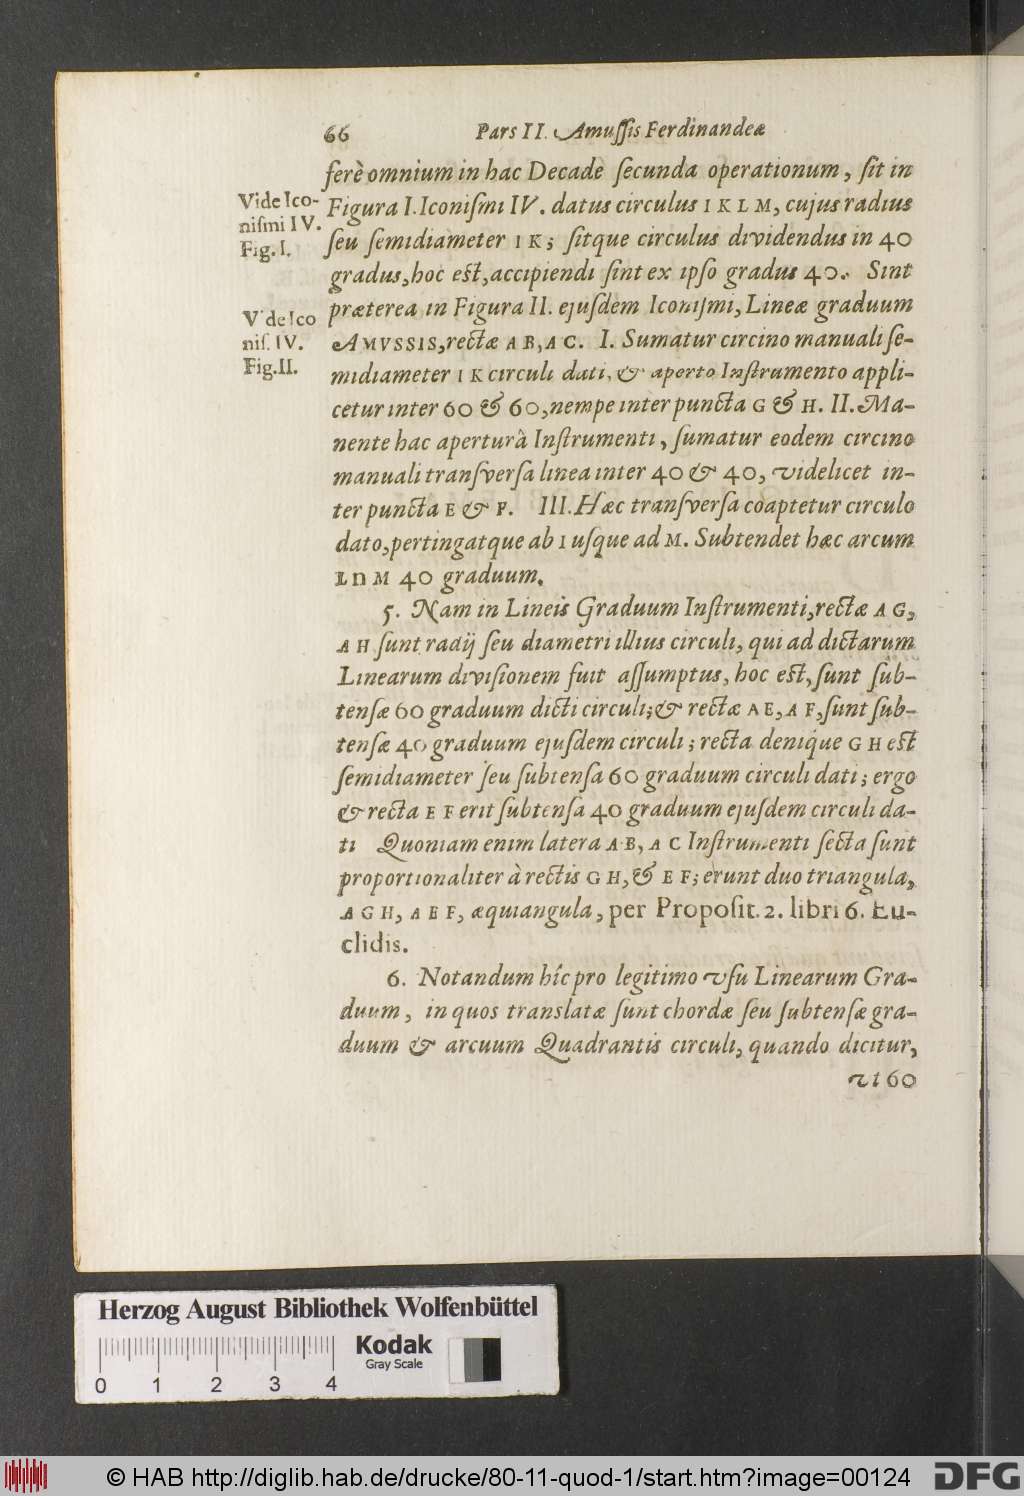 66 Pars II. Amuſſis Ferdinandeæ
ferè omnium in hac Decade ſecunda operationum, ſit in
Vide Ico-
niſmi IV.
Fig. I.
Figura I. Iconiſmi IV. datus circulus I K L M, cujus radius
ſeu ſemidiameter I K; ſitque circulus dividendus in 40
gradus, hoc eſt, accipiendi ſint ex ipſo gradus 40. Sint
Vide Ico
niſ. IV.
Fig. II.
præterea in Figura II. ejuſdem Iconiſmi, Lineæ graduum
AMVSSIS, rectæ A B, A C. I. Sumatur circino manuali ſe-
midiameter I K circuli dati, & aperto Inſtrumento appli-
cetur inter 60 & 60, nempe inter puncta G & H. II. Ma-
nente hac aperturâ Inſtrumenti, ſumatur eodem circino
manuali tranſverſa linea inter 40 & 40, videlicet in-
ter puncta E & F. III. Hæc tranſverſa coaptetur circulo
dato, pertingatque ab I uſque ad M. Subtendet hæc arcum
I n M 40 graduum.
5. Nam in Lineis Graduum Inſtrumenti, rectæ A G,
A H ſunt radij ſeu diametri illius circuli, qui ad dictarum
Linearum diviſionem fuit aſſumptus, hoc eſt, ſunt ſub-
tenſæ 60 graduum dicti circuli; & rectæ A E, A F, ſunt ſub-
tenſæ 40 graduum ejuſdem circuli; recta denique G H eſt
ſemidiameter ſeu ſubtenſa 60 graduum circuli dati; ergo
& recta E F erit ſubtenſa 40 graduum ejuſdem circuli da-
ti Quoniam enim latera A B, A C Inſtrumenti ſecta ſunt
proportionaliter à rectis G H, & E F; erunt duo triangula,
A G H, A E F, æquiangula, per Propoſit. 2. libri 6. Eu-
clidis.
6. Notandum hîc pro legitimo vſu Linearum Gra-
duum, in quos translatæ ſunt chordæ ſeu ſubtenſæ gra-
duum & arcuum Quadrantis circuli, quando dicitur,
vt 60
Herzog August Bibliothek Wolfenbüttel
Kodak
Gray Scale
0 1 2 3 4
© HAB http://diglib.hab.de/drucke/80-11-quod-1/start.htm?image=00124
DFG